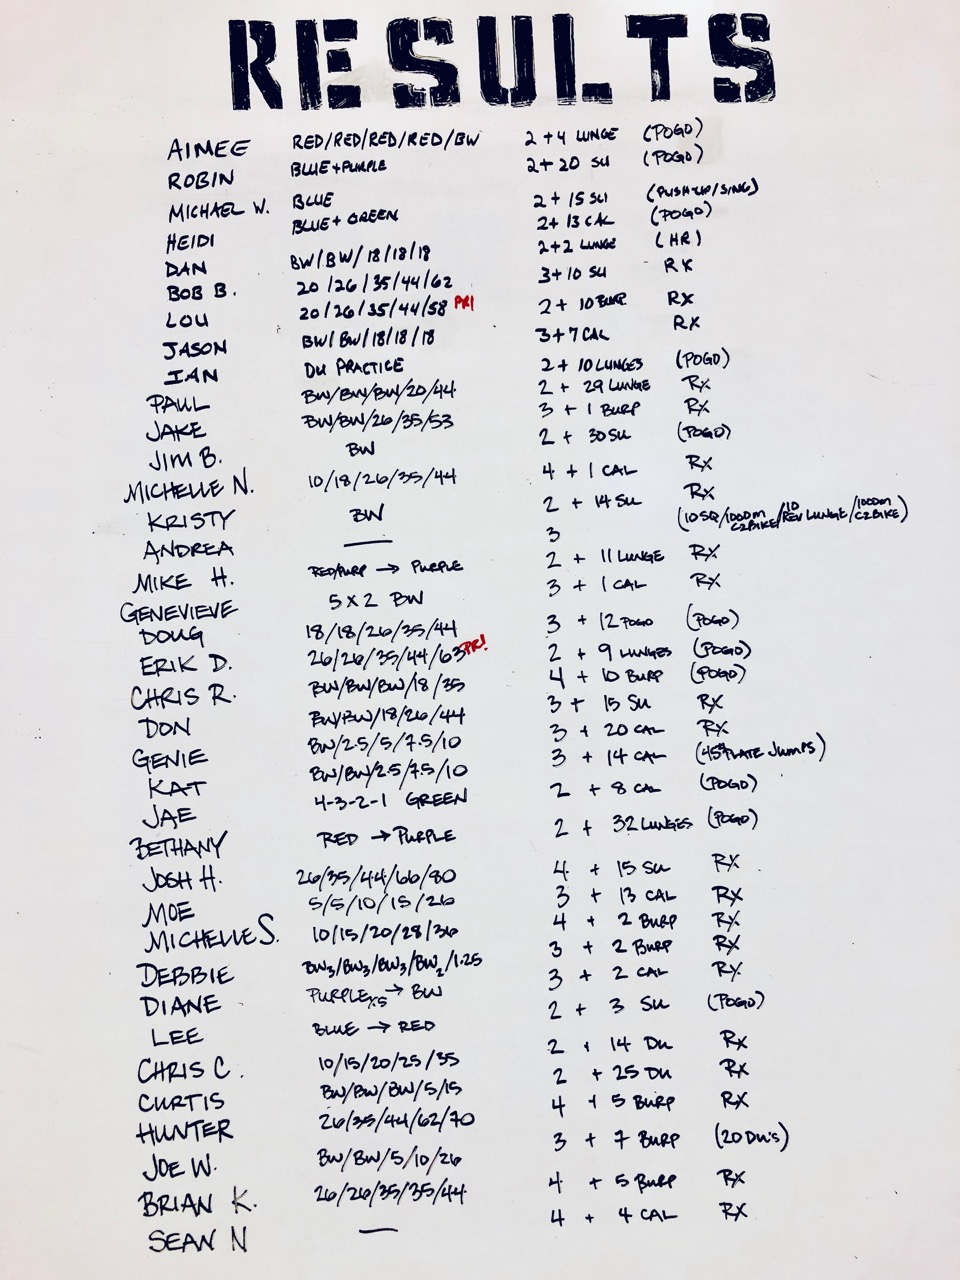 RESULTS
AIMEE RED/RED/RED/RED/BW 2+4 LUNGE (POGO)
ROBIN BLUE+PURPLE 2+20 SU (POGO)
MICHAEL W. BLUE 2+15 SU (PUSH-UP/SING)
HEIDI BLUE+GREEN 2+13 CAL (POGO)
DAN BW/BW/18/18/18 2+2 LUNGE (HR)
BOB B. 20/26/35/44/62 3+10 SU RX
LOU 20/26/35/44/58 PR! 2+10 BURP RX
JASON BW/BW/18/18/18 3+7 CAL RX
IAN DU PRACTICE 2+10 LUNGES (POGO)
PAUL BW/BW/BW/20/44 2 + 29 LUNGE RX
JAKE BW/BW/26/35/53 3 + 1 BURP RX
JIM B. BW 2 + 30 SU (POGO)
MICHELLE N. 10/18/26/35/44 4 + 1 CAL RX
KRISTY BW 2 + 14 SU RX
ANDREA — 3 (10 SQ/1000M C2BIKE/10 REV LUNGE/1000M C2BIKE)
MIKE H. RED/PURP → PURPLE 2 + 11 LUNGE RX
GENEVIEVE 5 X 2 BW 3 + 1 CAL RX
DOUG 18/18/26/35/44 3 + 12 POGO (POGO)
ERIK D. 26/26/35/44/63 PR! 2 + 9 LUNGES (POGO)
CHRIS R. BW/BW/BW/18/35 4 + 10 BURP (POGO)
DON BW/BW/18/26/44 3 + 15 SU RX
GENIE BW/2.5/5/7.5/10 3 + 20 CAL RX
KAT BW/BW/2.5/7.5/10 3 + 14 CAL (45# PLATE JUMPS)
JAE 4-3-2-1 GREEN 2 + 8 CAL (POGO)
BETHANY RED → PURPLE 2 + 32 LUNGES (POGO)
JOSH H. 26/35/44/66/80 4 + 15 SU RX
MOE 5/5/10/15/26 3 + 13 CAL RX
MICHELLE S. 10/15/20/28/36 4 + 2 BURP RX
DEBBIE BW3/BW3/BW3/BW2/1.25 3 + 2 BURP RX
DIANE PURPLEx5 → BW 3 + 2 CAL RX
LEE BLUE → RED 2 + 3 SU (POGO)
CHRIS C. 10/15/20/25/35 2 + 14 DU RX
CURTIS BW/BW/BW/5/15 2 + 25 DU RX
HUNTER 26/35/44/62/70 4 + 5 BURP RX
JOE W. BW/BW/5/10/26 3 + 7 BURP (20 DU'S)
BRIAN K. 26/26/35/35/44 4 + 5 BURP RX
SEAN N — 4 + 4 CAL RX